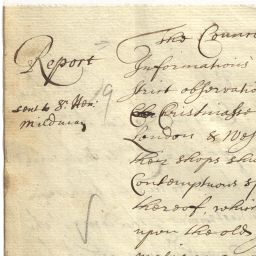 Report
sent to Sr Hen:
Mildmay
19
The Counc
Informations
strict observatio
Christmasse
London & Wes
their shops shu
Contemptuous sp
thereof, whi
upon the old